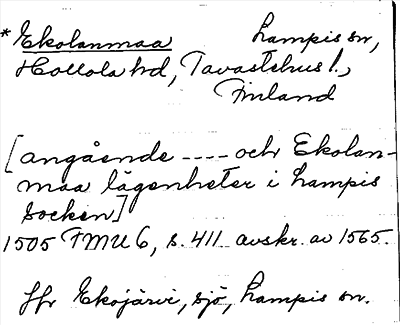 * Ekolanmaa Lampis sn,
Hollola hd, Tavastehus l.,
Finland
[angående ---- och Ekolan-
maa lägenheter i Lampis
socken]
1505 FMU 6, s. 411 avskr. av 1565.
Jfr Ekojärvi, sjö, Lampis sn.